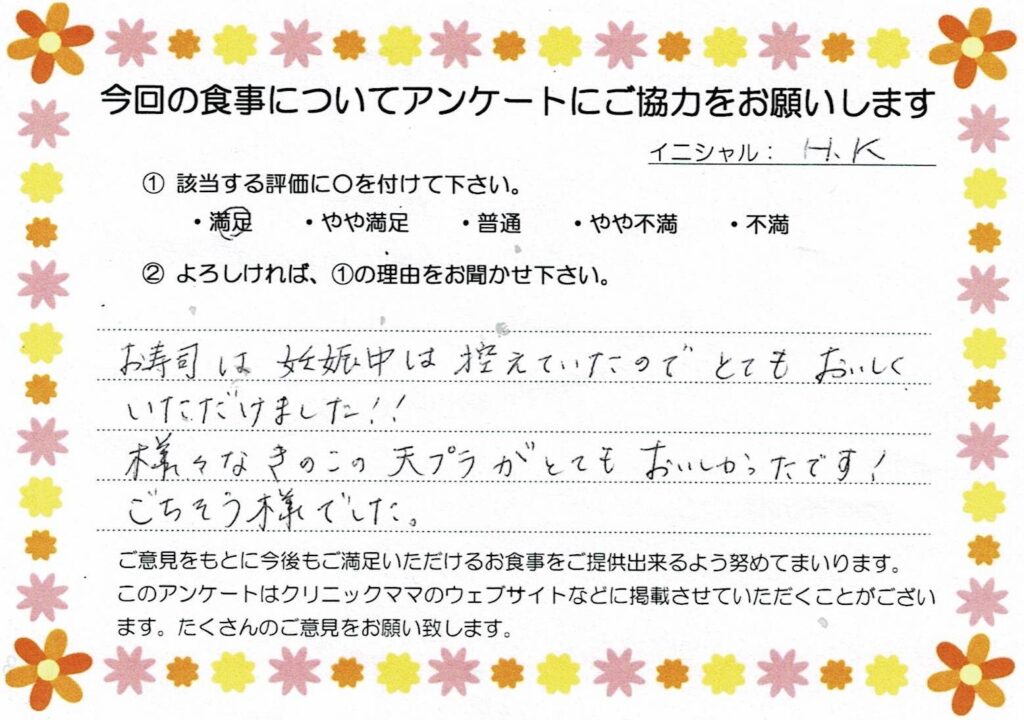 今回の食事についてアンケートにご協力をお願いします
イニシャル： H.K
① 該当する評価に○を付けて下さい。
・満足 ・やや満足 ・普通 ・やや不満 ・不満
② よろしければ、①の理由をお聞かせ下さい。
お寿司は妊娠中は控えていたのでとてもおいしく
いただけました!!
様々なきのこの天プラがとてもおいしかったです!
ごちそう様でした。
ご意見をもとに今後もご満足いただけるお食事をご提供出来るよう努めてまいります。
このアンケートはクリニックママのウェブサイトなどに掲載させていただくことがござい
ます。たくさんのご意見をお願い致します。